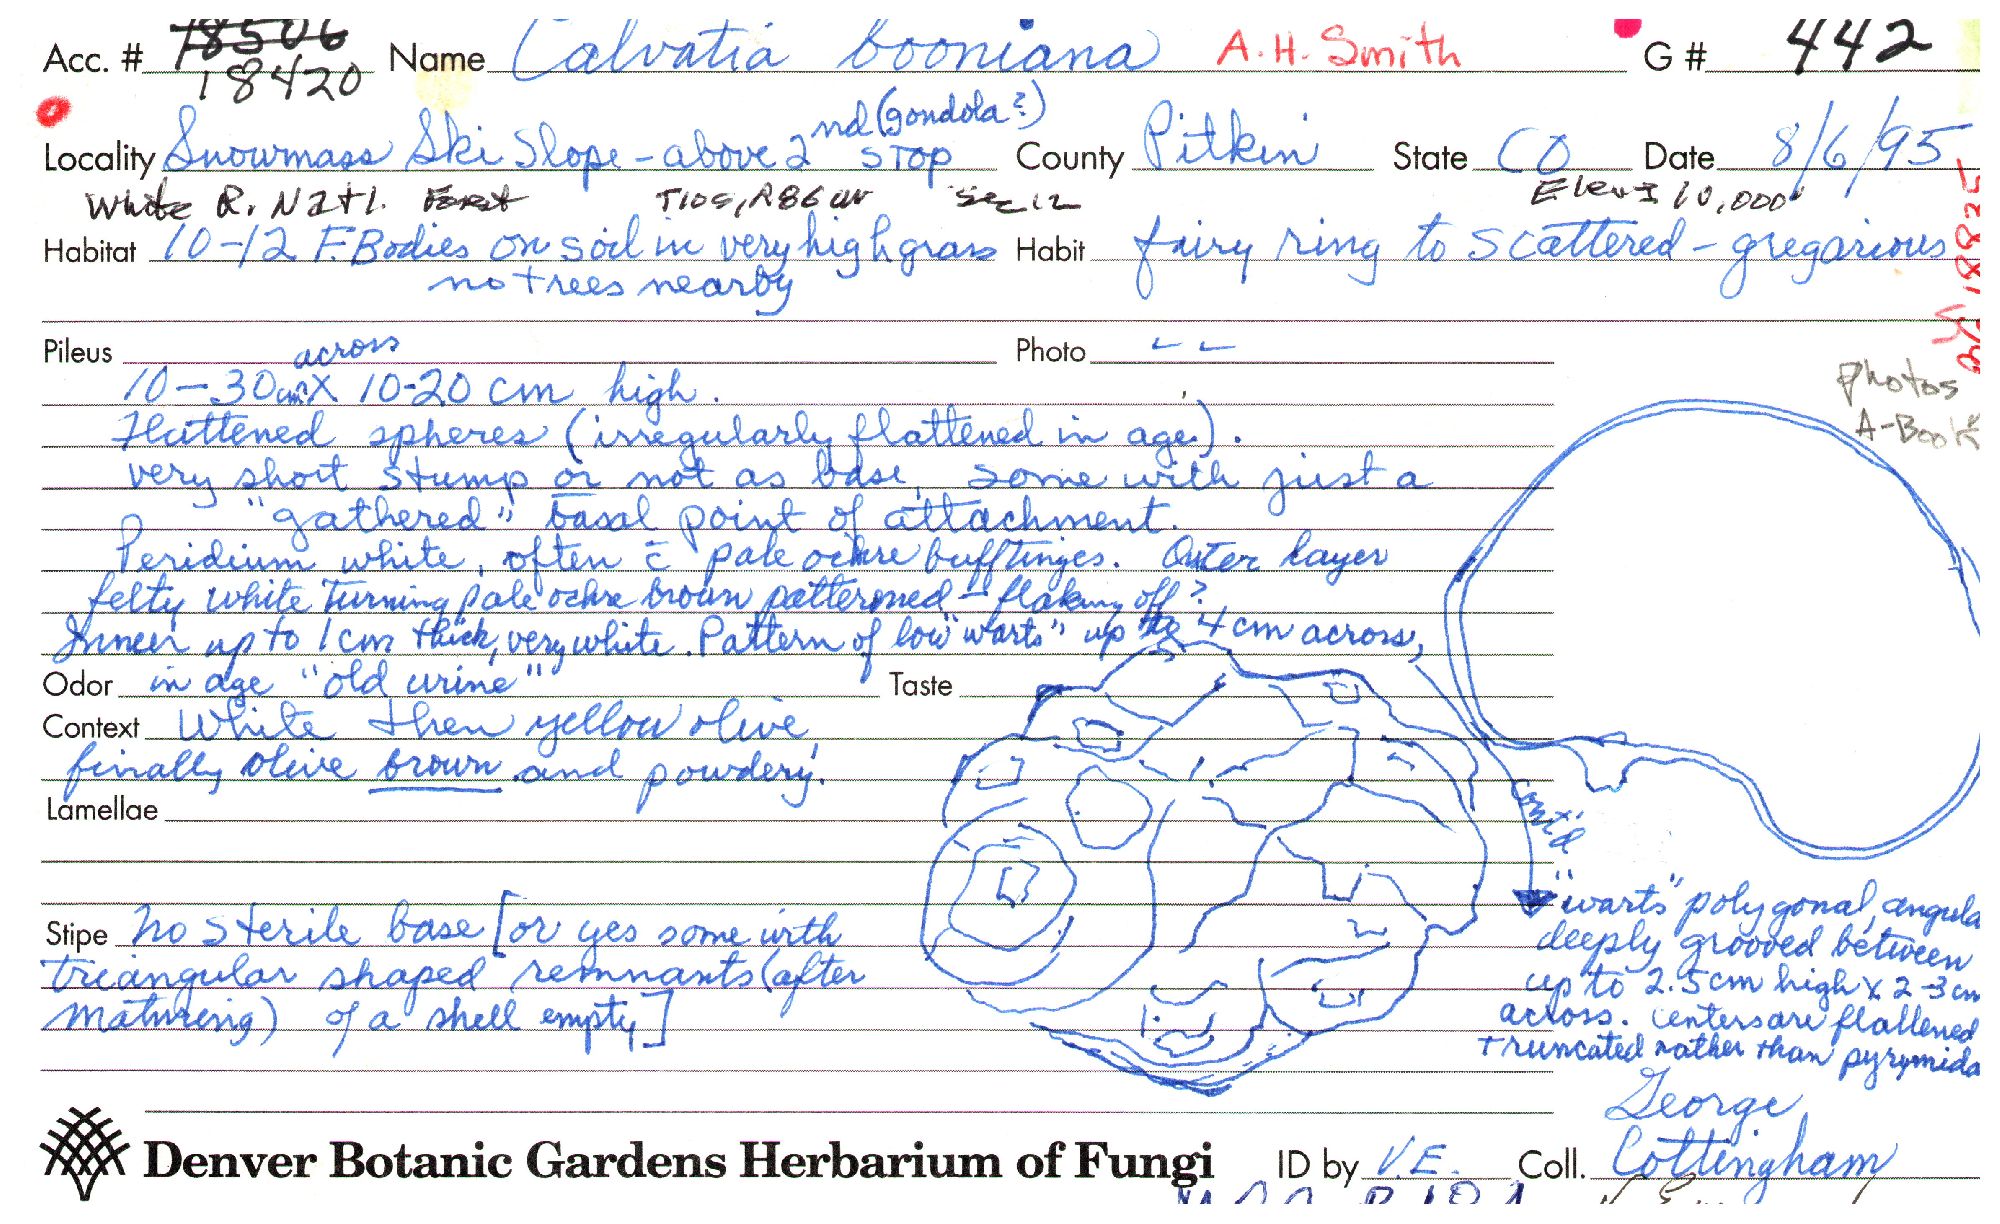 Acc. # 18506 Name Calvatia booniana A.H. Smith G # 442
18420
nd (gondola?)
Locality Snowmass Ski Slope - above 2 STOP County Pitkin State CO Date 8/6/95
White R. Natl. Forest T10S, R86W Sec 12 Elev ± 10,000'
Habitat 10-12 F. Bodies on soil in very high grass Habit fairy ring to scattered - gregarious
no trees nearby
18825
Pileus across Photo
10-30cm X 10-20 cm high.
photos
A-Book
Flattened spheres (irregularly flattened in age).
very short stump or not as base, some with just a
"gathered" basal point of attachment.
Peridium white, often c̄ pale ochre buff tinges. Outer layer
felty white turning pale ochre brown patterned - flaking off?
Inner up to 1 cm thick, very white. Pattern of low "warts" up to 4 cm across,
Odor in age "old urine" Taste
Context White then yellow olive,
finally olive brown and powdery.
Lamellae
cont'd.
"warts" polygonal, angula
deeply grooved between
up to 2.5 cm high x 2-3 cm
across. Centers are flattened
truncated rather than pyrymida
Stipe No sterile base [or yes some with
triangular shaped remnants (after
maturing) of a shell empty]
George
Denver Botanic Gardens Herbarium of Fungi ID by V.E. Coll. Cottingham